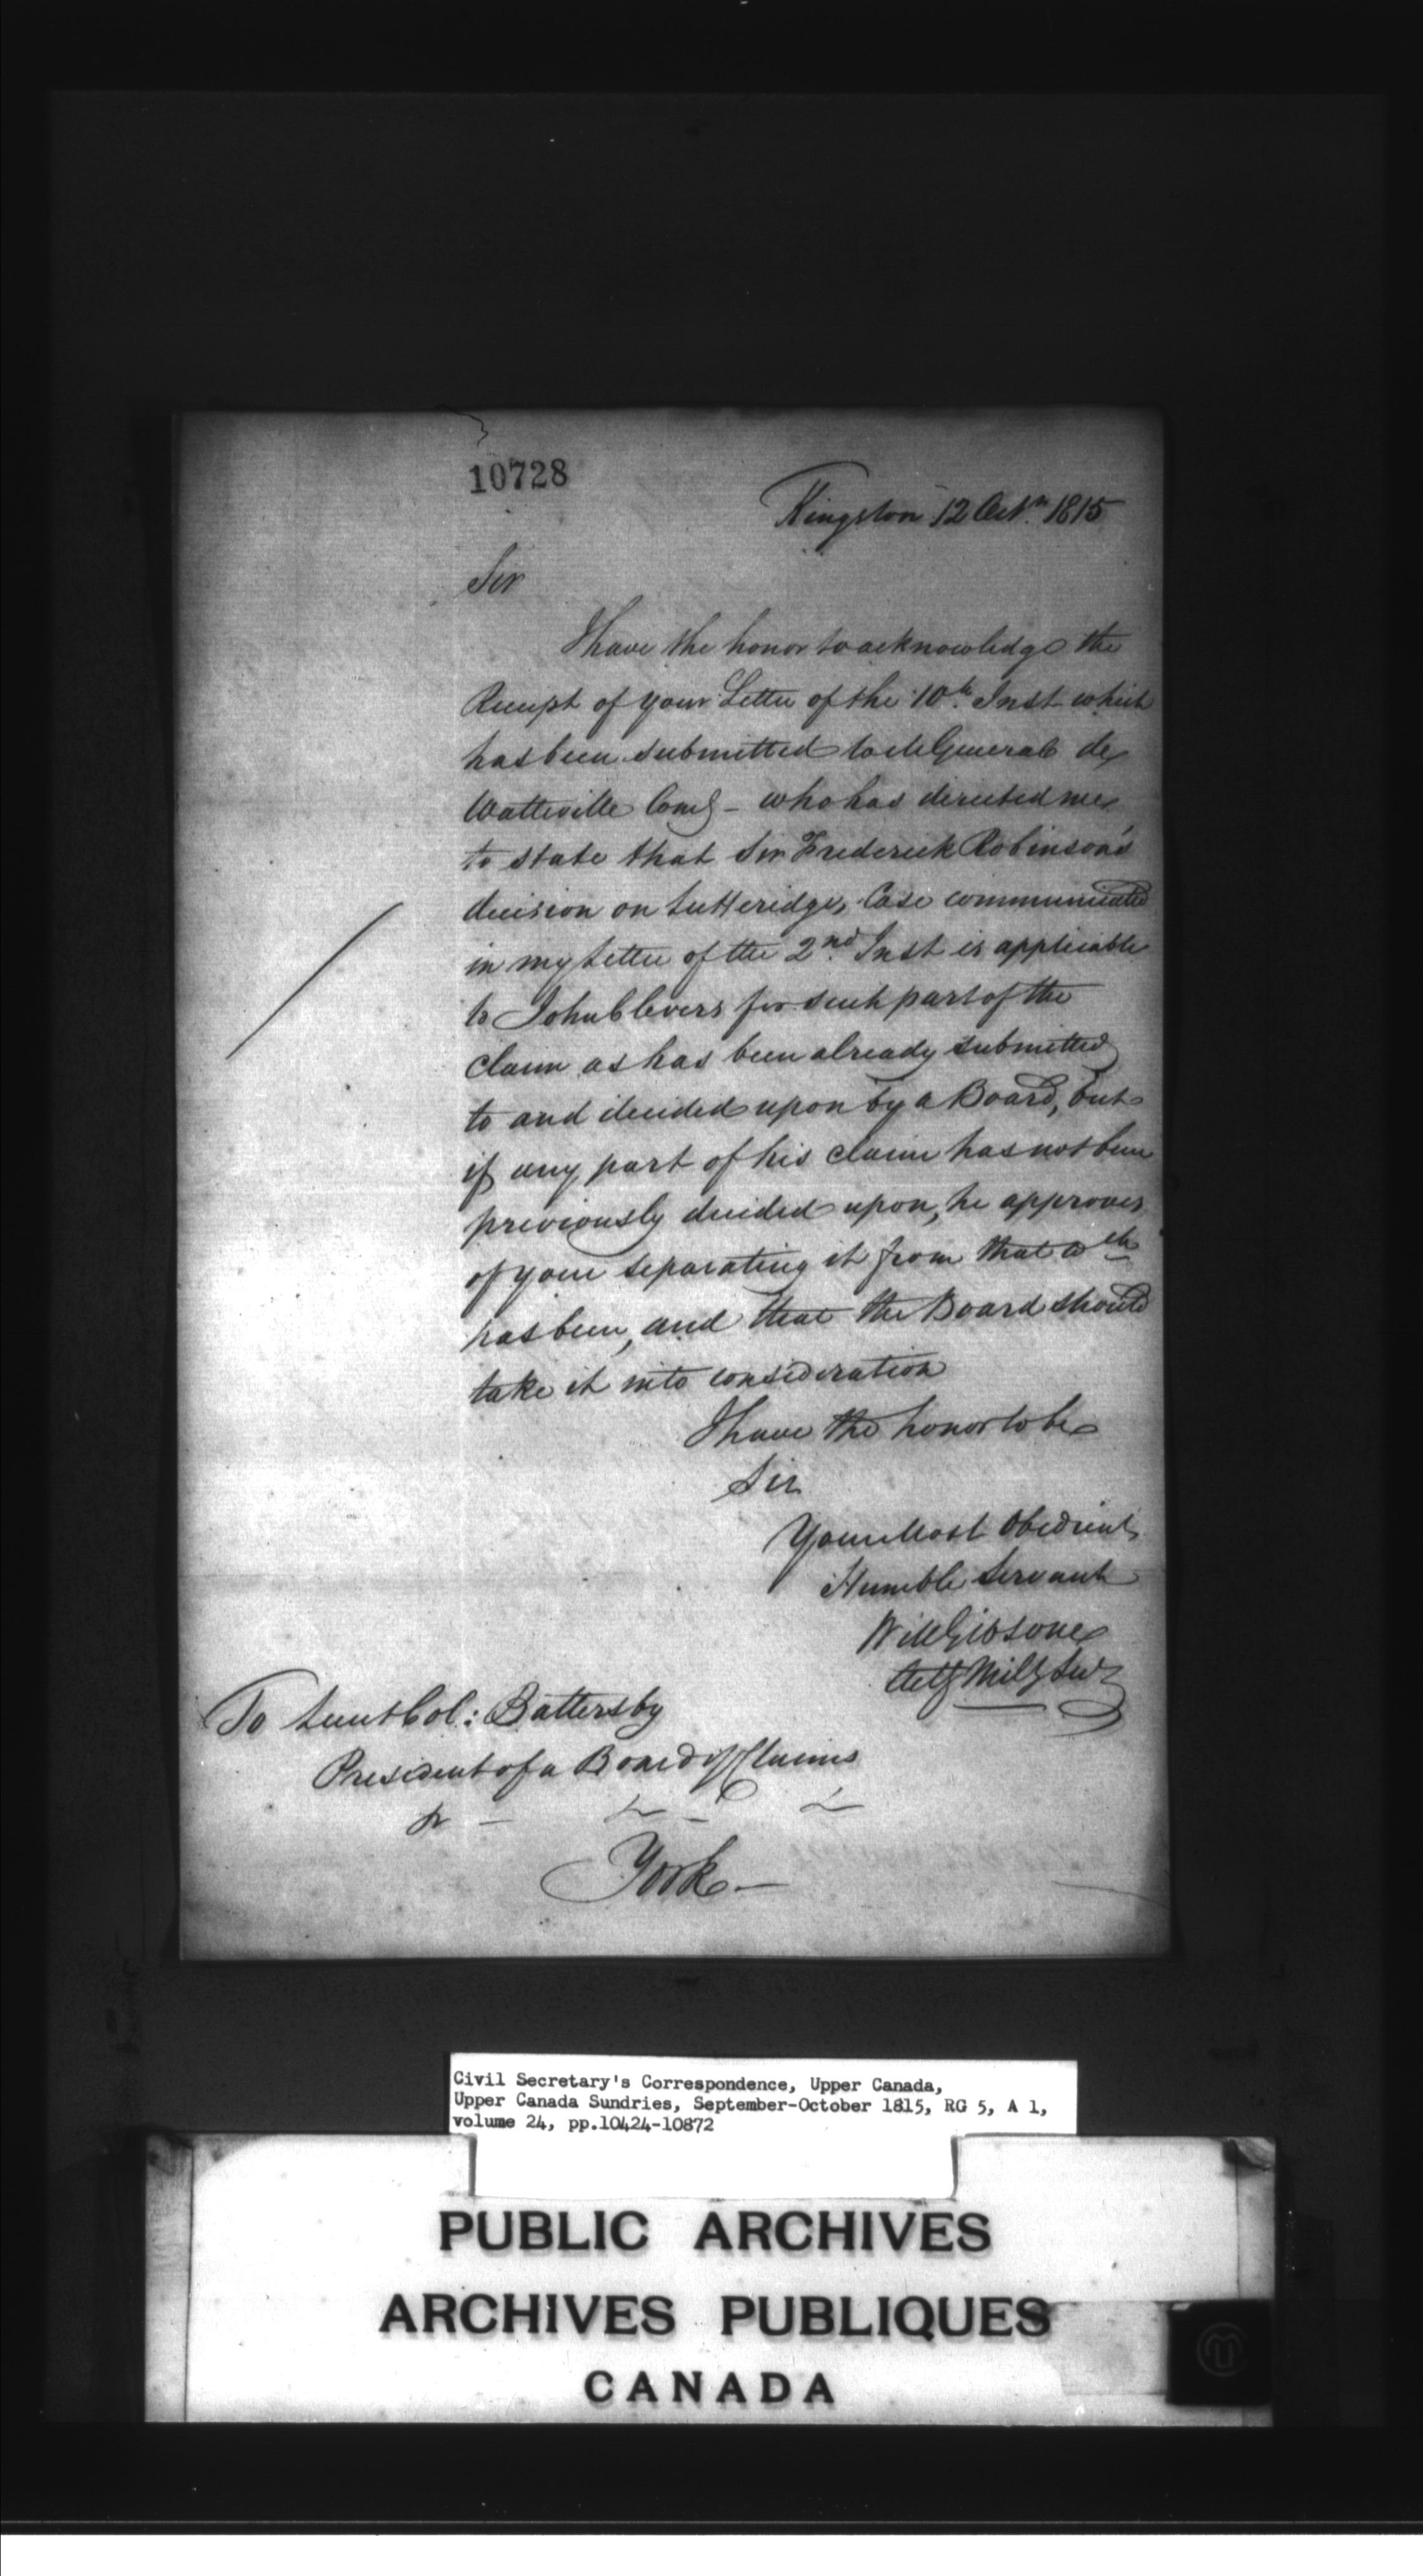 10728
Kingston 12 Octr. 1815
Sir
I have the honor to acknowledge the
Receipt of your Letter of the 10th. Inst which
has been submitted to M General de
Watteville Comg - who has directed me
to state that Sir Frederick Robinson's
decision on Lutteridges Case communicated
in my Letter of the 2nd. Inst is applicable
to John Clevers for such part of the
claim as has been already submitted
to and decided upon by a Board, but
if any part of his claim has not been
previously decided upon, he approves
of your separating it from that wch
has been, and that the Board should
take it into consideration
I have the honor to be
Sir
Your Most Obedient
Humble Servant
W Gibsone
Actg Mily Secy
To Lieut Col: Battersby
President of a Board of Claims
York -
Civil Secretary's Correspondence, Upper Canada,
Upper Canada Sundries, September-October 1815, RG 5, A 1,
volume 24, pp.10424-10872
PUBLIC ARCHIVES
ARCHIVES PUBLIQUES
CANADA